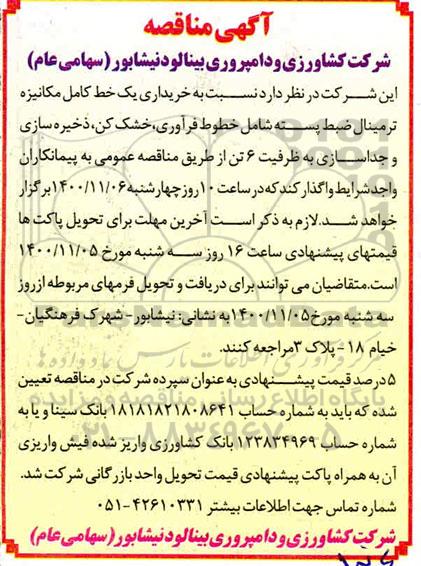 آگهی مناقصه
شرکت کشاورزی و دامپروری بینالود نیشابور (سهامی عام)
این شرکت در نظر دارد نسبت به خریداری یک خط کامل مکانیزه
ترمینال ضبط پسته شامل خطوط فرآوری، خشک کن، ذخیره سازی
و جداسازی به ظرفیت ۶ تن از طریق مناقصه عمومی به پیمانکاران
واجد شرایط واگذار کند که در ساعت ۱۰ روز چهارشنبه ۱۴۰۰/۱۱/۰۶ برگزار
خواهد شد. لازم به ذکر است آخرین مهلت برای تحویل پاکت ها
قیمتهای پیشنهادی ساعت ۱۶ روز سه شنبه مورخ ۱۴۰۰/۱۱/۰۵
است. متقاضیان می توانند برای دریافت و تحویل فرمهای مربوطه از روز
سه شنبه مورخ ۱۴۰۰/۱۱/۰۵ به نشانی: نیشابور- شهرک فرهنگیان-
خیام ۱۸ - پلاک ۳ مراجعه کنند.
۵ درصد قیمت پیشنهادی به عنوان سپرده شرکت در مناقصه تعیین
شده که باید به شماره حساب ۱۸۱۸۱۸۲۱۸۰۸۶۴۱ بانک سینا و یا به
شماره حساب ۱۲۳۸۳۴۹۶۹ بانک کشاورزی واریز شده فیش واریزی
آن به همراه پاکت پیشنهادی قیمت تحویل واحد بازرگانی شرکت شد.
شماره تماس جهت اطلاعات بیشتر ۴۲۶۱۰۳۳۱-۰۵۱
شرکت کشاورزی و دامپروری بینالود نیشابور (سهامی عام)
پایگاه اطلاع رسانی مناقصه و مزایده